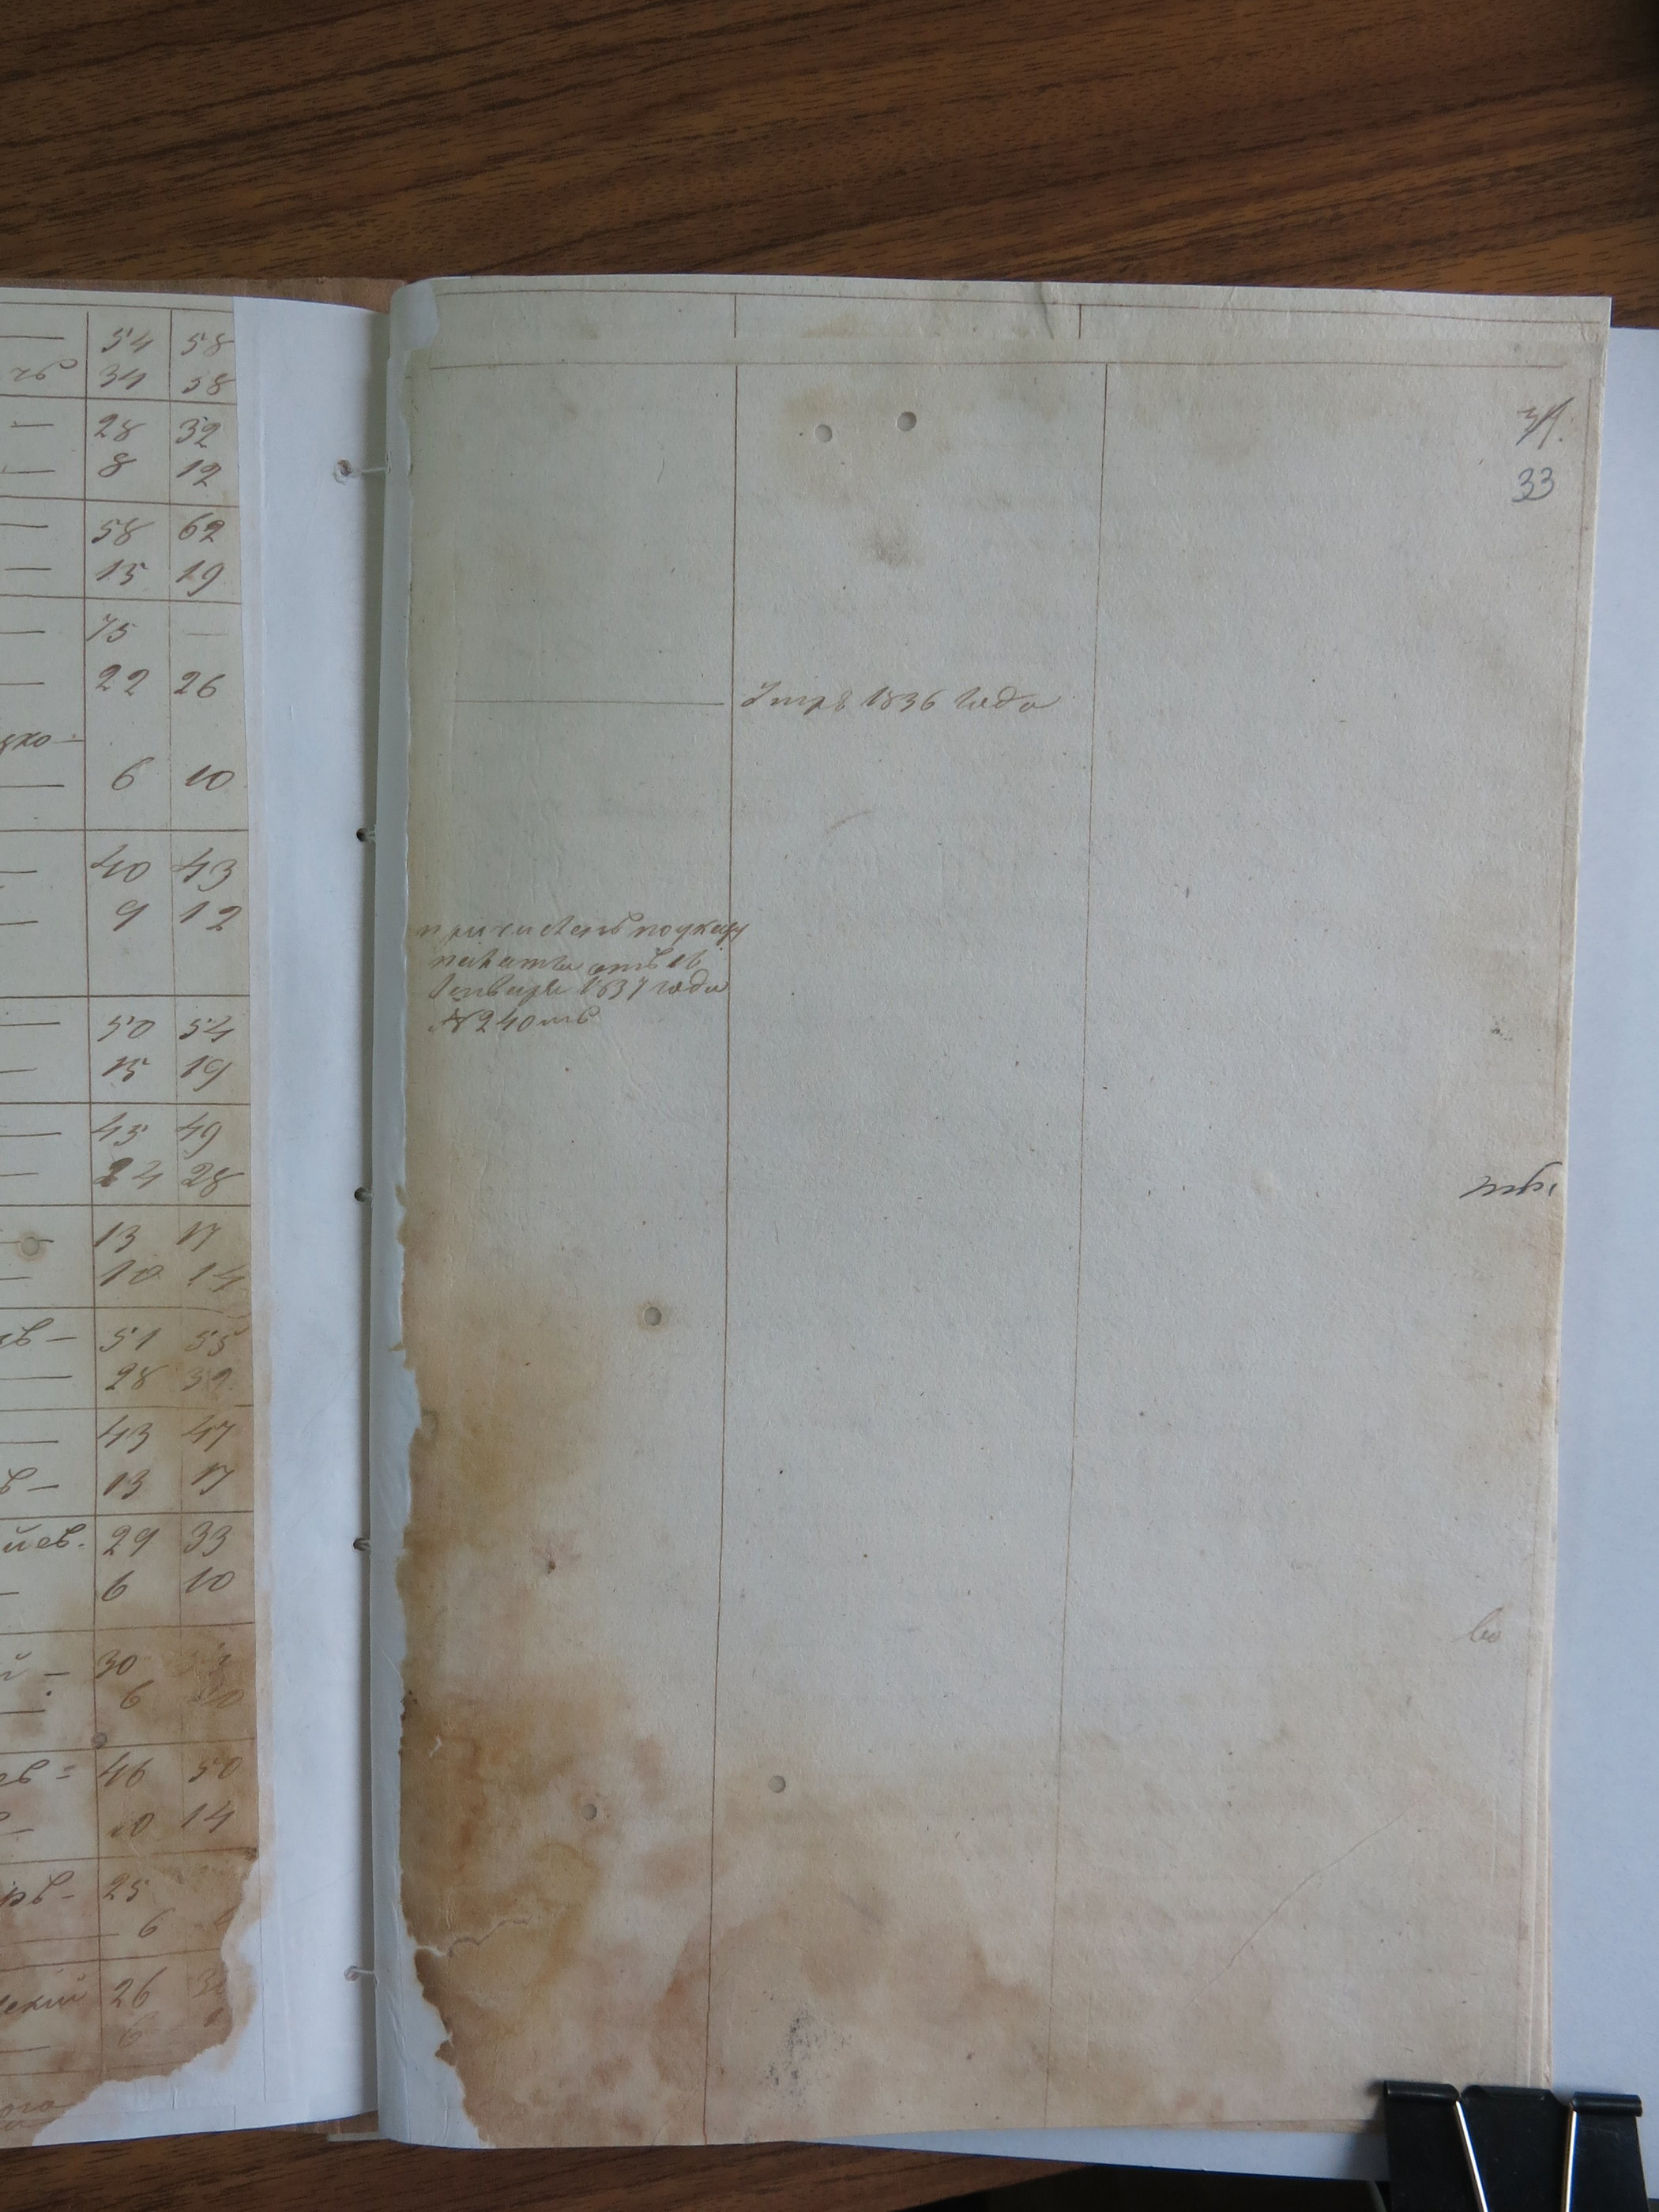 54 58
чъ 34 38
28 32
8 12
58 62
15 19
75 —
22 26
ухо-
6 10
40 43
9 12
50 54
15 19
45 49
24 28
13 17
10 14
въ — 51 55
28 32
43 47
въ — 13 17
йев. 29 33
6 10
й — 30
6 10
евъ = 46 50
10 14
ръ — 25
6
вский 26 30
6
ого
31.
33
Умръ 1836 года
причисленъ по указу
палаты отъ 16
Генваря 1837 года
№ 240 мъ